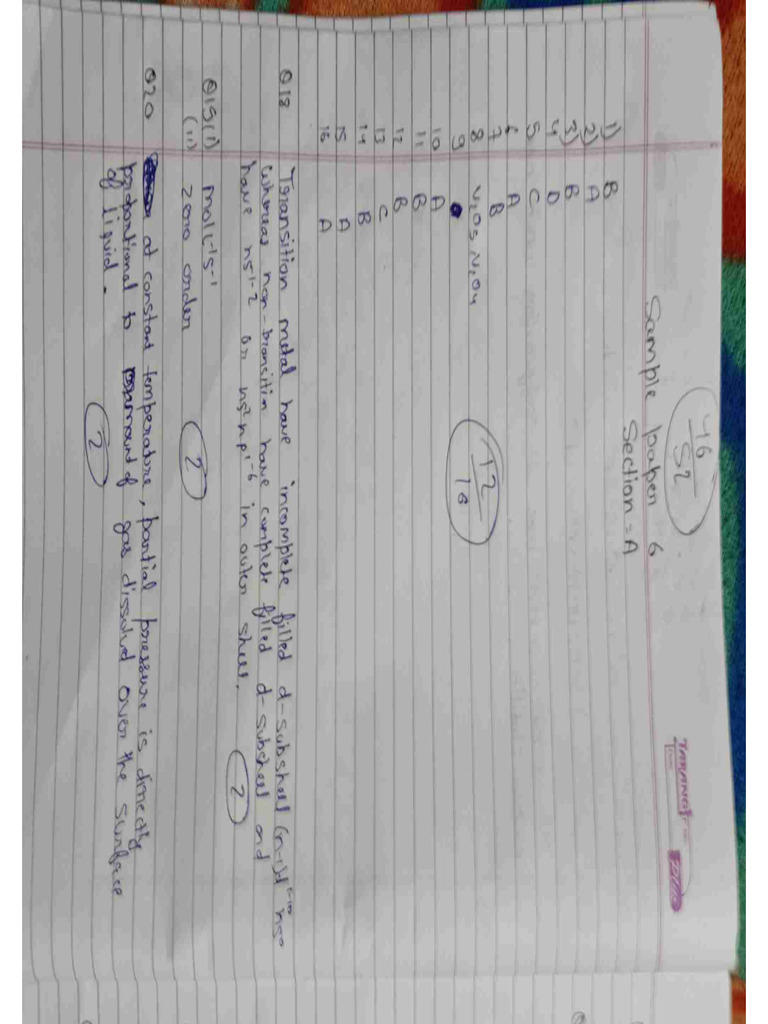 46/52
Sample paper 6
Section = A
1) B
2) A
3) B
4 D
5 C
6 A
7 B
8 V2O5 V2O4
9
10 A
11 B
12 B
13 C
14 B
15 A
16 A
12/16
Q18 Transition metal have incomplete filled d-subshell (n-1)d1-10 ns0-
whereas non-transition have complete filled d-subshell and
have ns1-2 or ns2np1-6 in outer shell.
2
Q19(i) mol L-1s-1
(ii) zero order
2
Q20 at constant temperature, partial pressure is directly
propotional to amount of gas dissolved over the surface
of liquid.
2